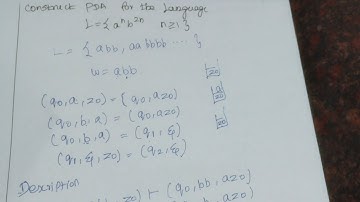 Construct PDA for the Language
L = { aⁿb²ⁿ n≥1 }
L = { abb, aabbbb .... }
w = abb
(q0, a, z0) = (q0, az0)
(q0, b, a) = (q0, az0)
(q0, b, a) = (q1, ε)
(q1, ε, z0) = (q2, ε)
Description
z0) ⊢ (q0, bb, az0)